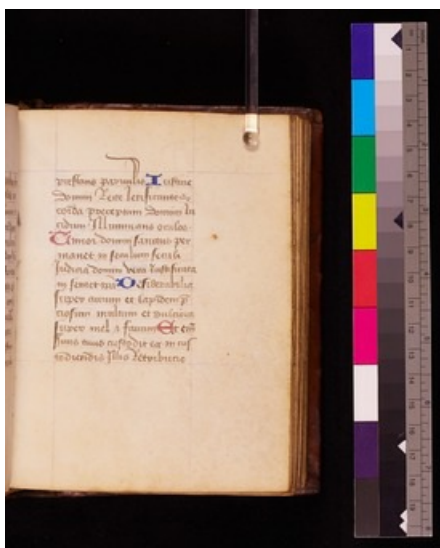 prestans parvulis Iusticie
Domini recte letificantes
corda preceptum Domini lu
cidum Illuminans oculos
Timor domini sanctus per
manet in seculum seculi
Judicia domini vera Justificata
in semet ipsa Desiderabilia
super aurum et lapidem p
ciosum multum et dulciora
super mel & favum Et eni
servus tuus custodit ea in cus
todiendis Illis retributio